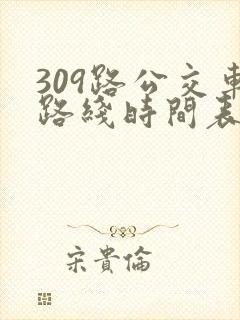 309路公交車
路綫時間表
宋貴倫